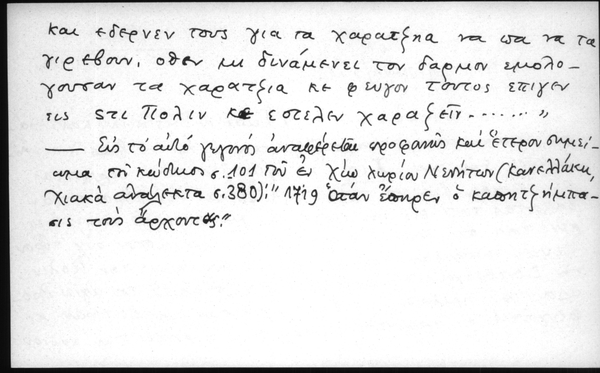 και εδερνεν τους για τα χαρατζηα να πα να τα
γιρεβουν, οθεν μι δινάμενει τον δαρμον εμολο-
γουσαν τα χαρατζια κε φευγον τουτος επιγεν
εις στι Πολιν κε εστελεν χαραζεῖν........"
— Εἰς τὸ αὐτὸ γεγονός ἀναφέρεται προφανῶς καὶ ἕτερον σημεί-
ωμα τοῦ κώδικος σ.101 τοῦ ἐν Χίῳ χωρίου Νενήτων (Κανελλάκη,
Χιακὰ ἀνάλεκτα σ.380): "1719 ὅταν ἔπηρεν ὁ καπητζήμπα-
σις τοὺς ἄρχοντες."